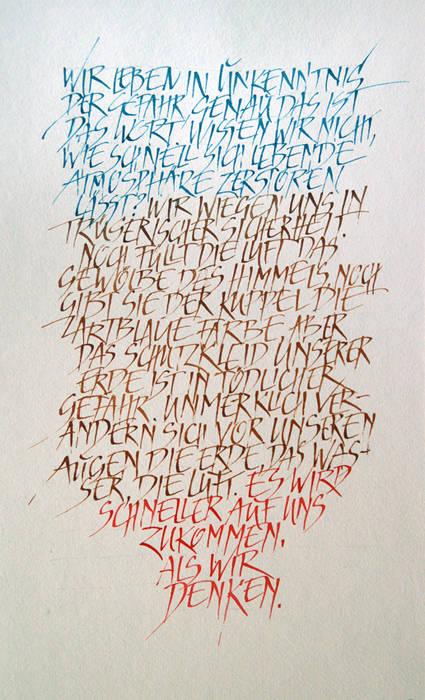 WIR LEBEN IN UNKENNTNIS
DER GEFAHR. GENAU DAS IST
DAS WORT. WISSEN WIR NICHT,
WIE SCHNELL SICH LEBENDE
ATMOSPHÄRE ZERSTÖREN
LÄSST? WIR WIEGEN UNS IN
TRÜGERISCHER SICHERHEIT.
NOCH FÜLLT DIE LUFT DAS
GEWÖLBE DES HIMMELS, NOCH
GIBT SIE DER KUPPEL DIE
ZARTBLAUE FARBE, ABER
DAS SCHUTZKLEID UNSERER
ERDE IST IN TÖDLICHER
GEFAHR. UNMERKLICH VER-
ÄNDERN SICH VOR UNSEREN
AUGEN DIE ERDE DAS WAS-
SER, DIE LUFT. ES WIRD
SCHNELLER AUF UNS
ZUKOMMEN,
ALS WIR
DENKEN.